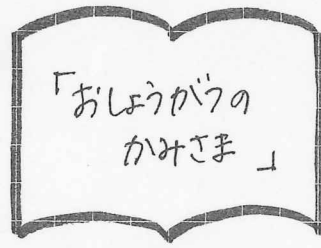 「おしょうがつの
かみさま」